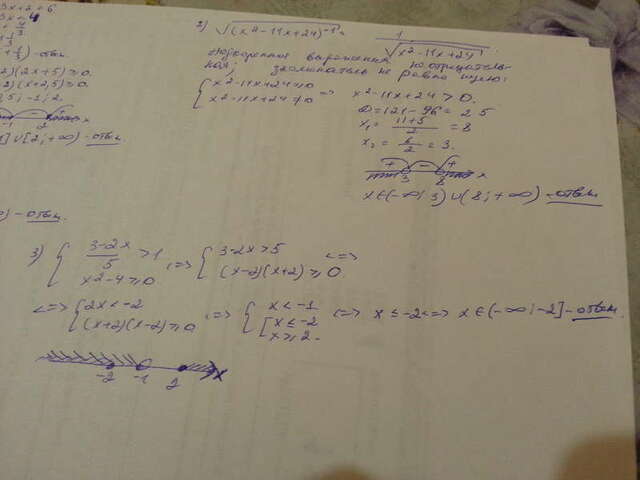 3x+2=6
2)(2x+5)≥0.
2)(x+2,5)≥0.
-1 2 + x
] ∪ [2; +∞) - ответ
) - ответ.
2) √(x²-11x+24)⁻¹ = 1/√(x²-11x+24).
Подкоренное выражение неотрицатель-
ное; знаменатель не равно нулю:
{ x²-11x+24≥0
x²-11x+24≠0 => x²-11x+24>0.
D=121-96=25
x₁= (11+5)/2 =8
x₂= 6/2 =3.
+ - + 3 8 x
x∈(-∞; 3)∪(8; +∞) - ответ
3) { (3-2x)/5 >1
x²-4≥0 <=> { 3-2x>5
(x-2)(x+2)≥0. <=>
<=> { 2x<-2
(x+2)(x-2)≥0 <=> { x<-1
[ x≤-2
x≥2. <=> x≤-2 <=> x∈(-∞; -2] - ответ.
-2 -1 2 x